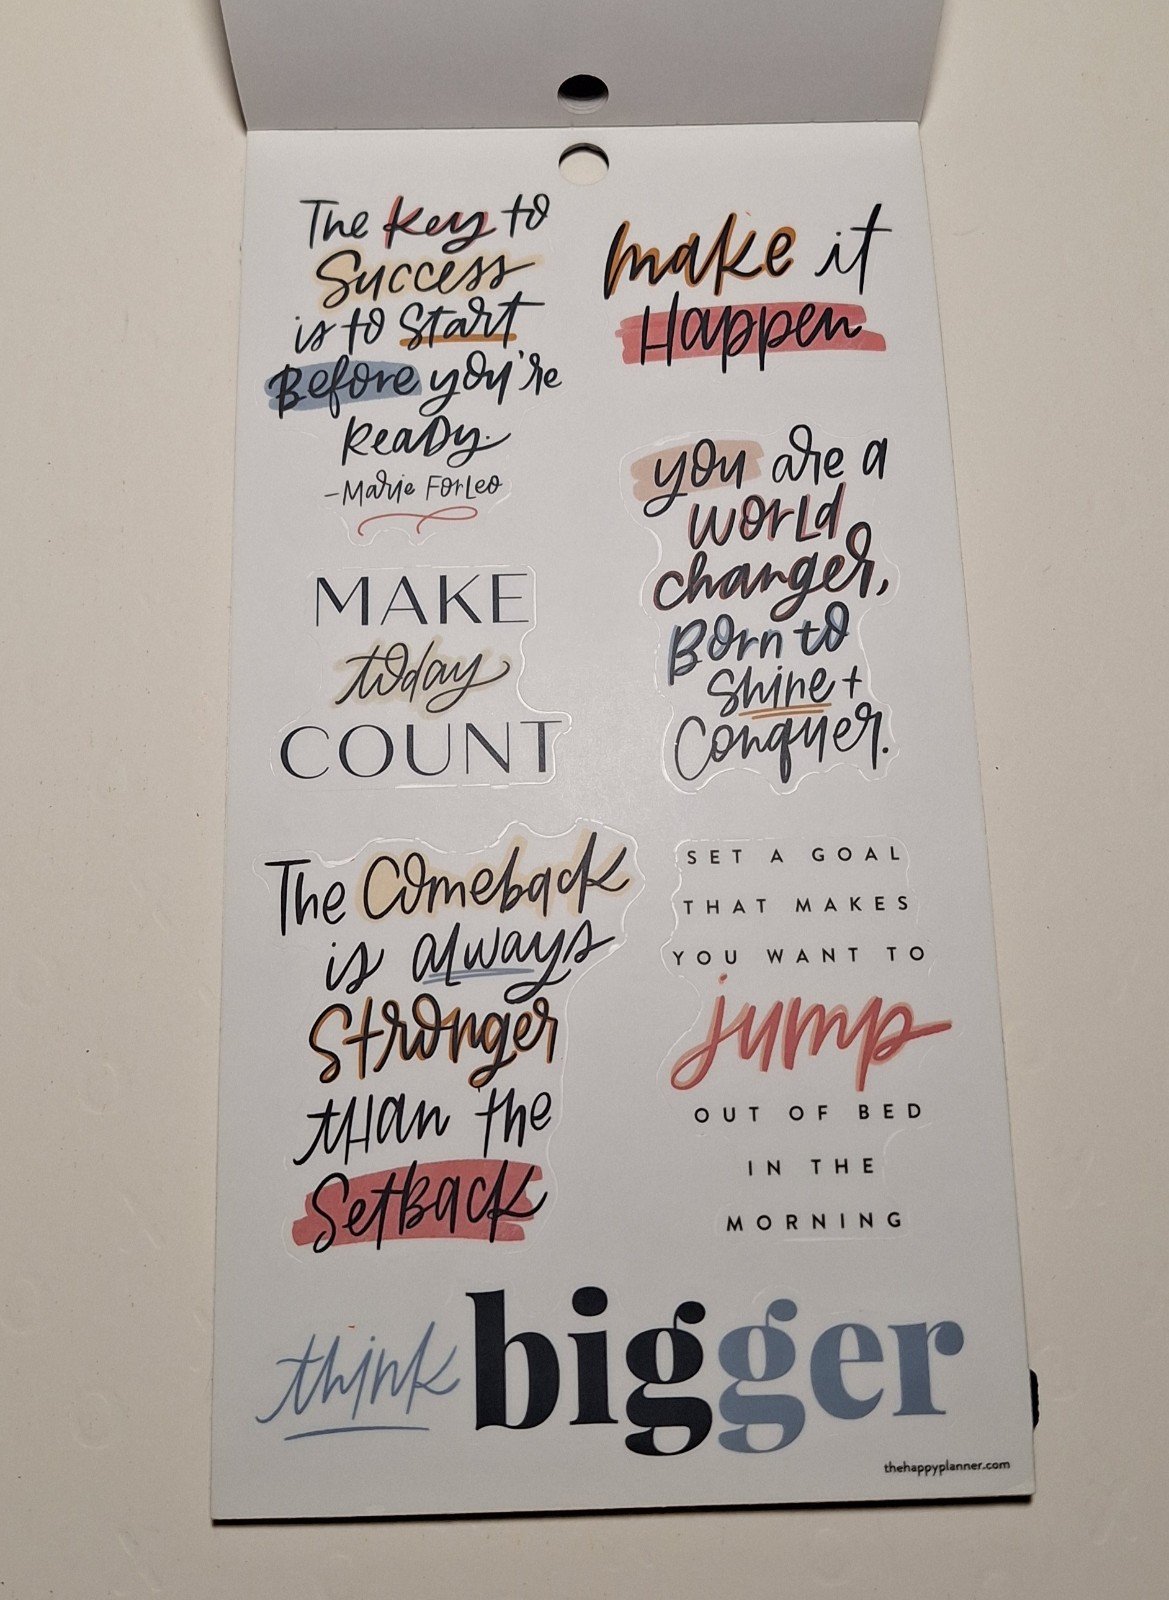 The key to
Success
is to Start
Before you're
Ready.
-Marie Forleo
make it
Happen
you are a
world
changer,
Born to
Shine +
Conquer.
MAKE
today
COUNT
The Comeback
is always
Stronger
than the
Setback
SET A GOAL
THAT MAKES
YOU WANT TO
jump
OUT OF BED
IN THE
MORNING
think bigger
thehappyplanner.com